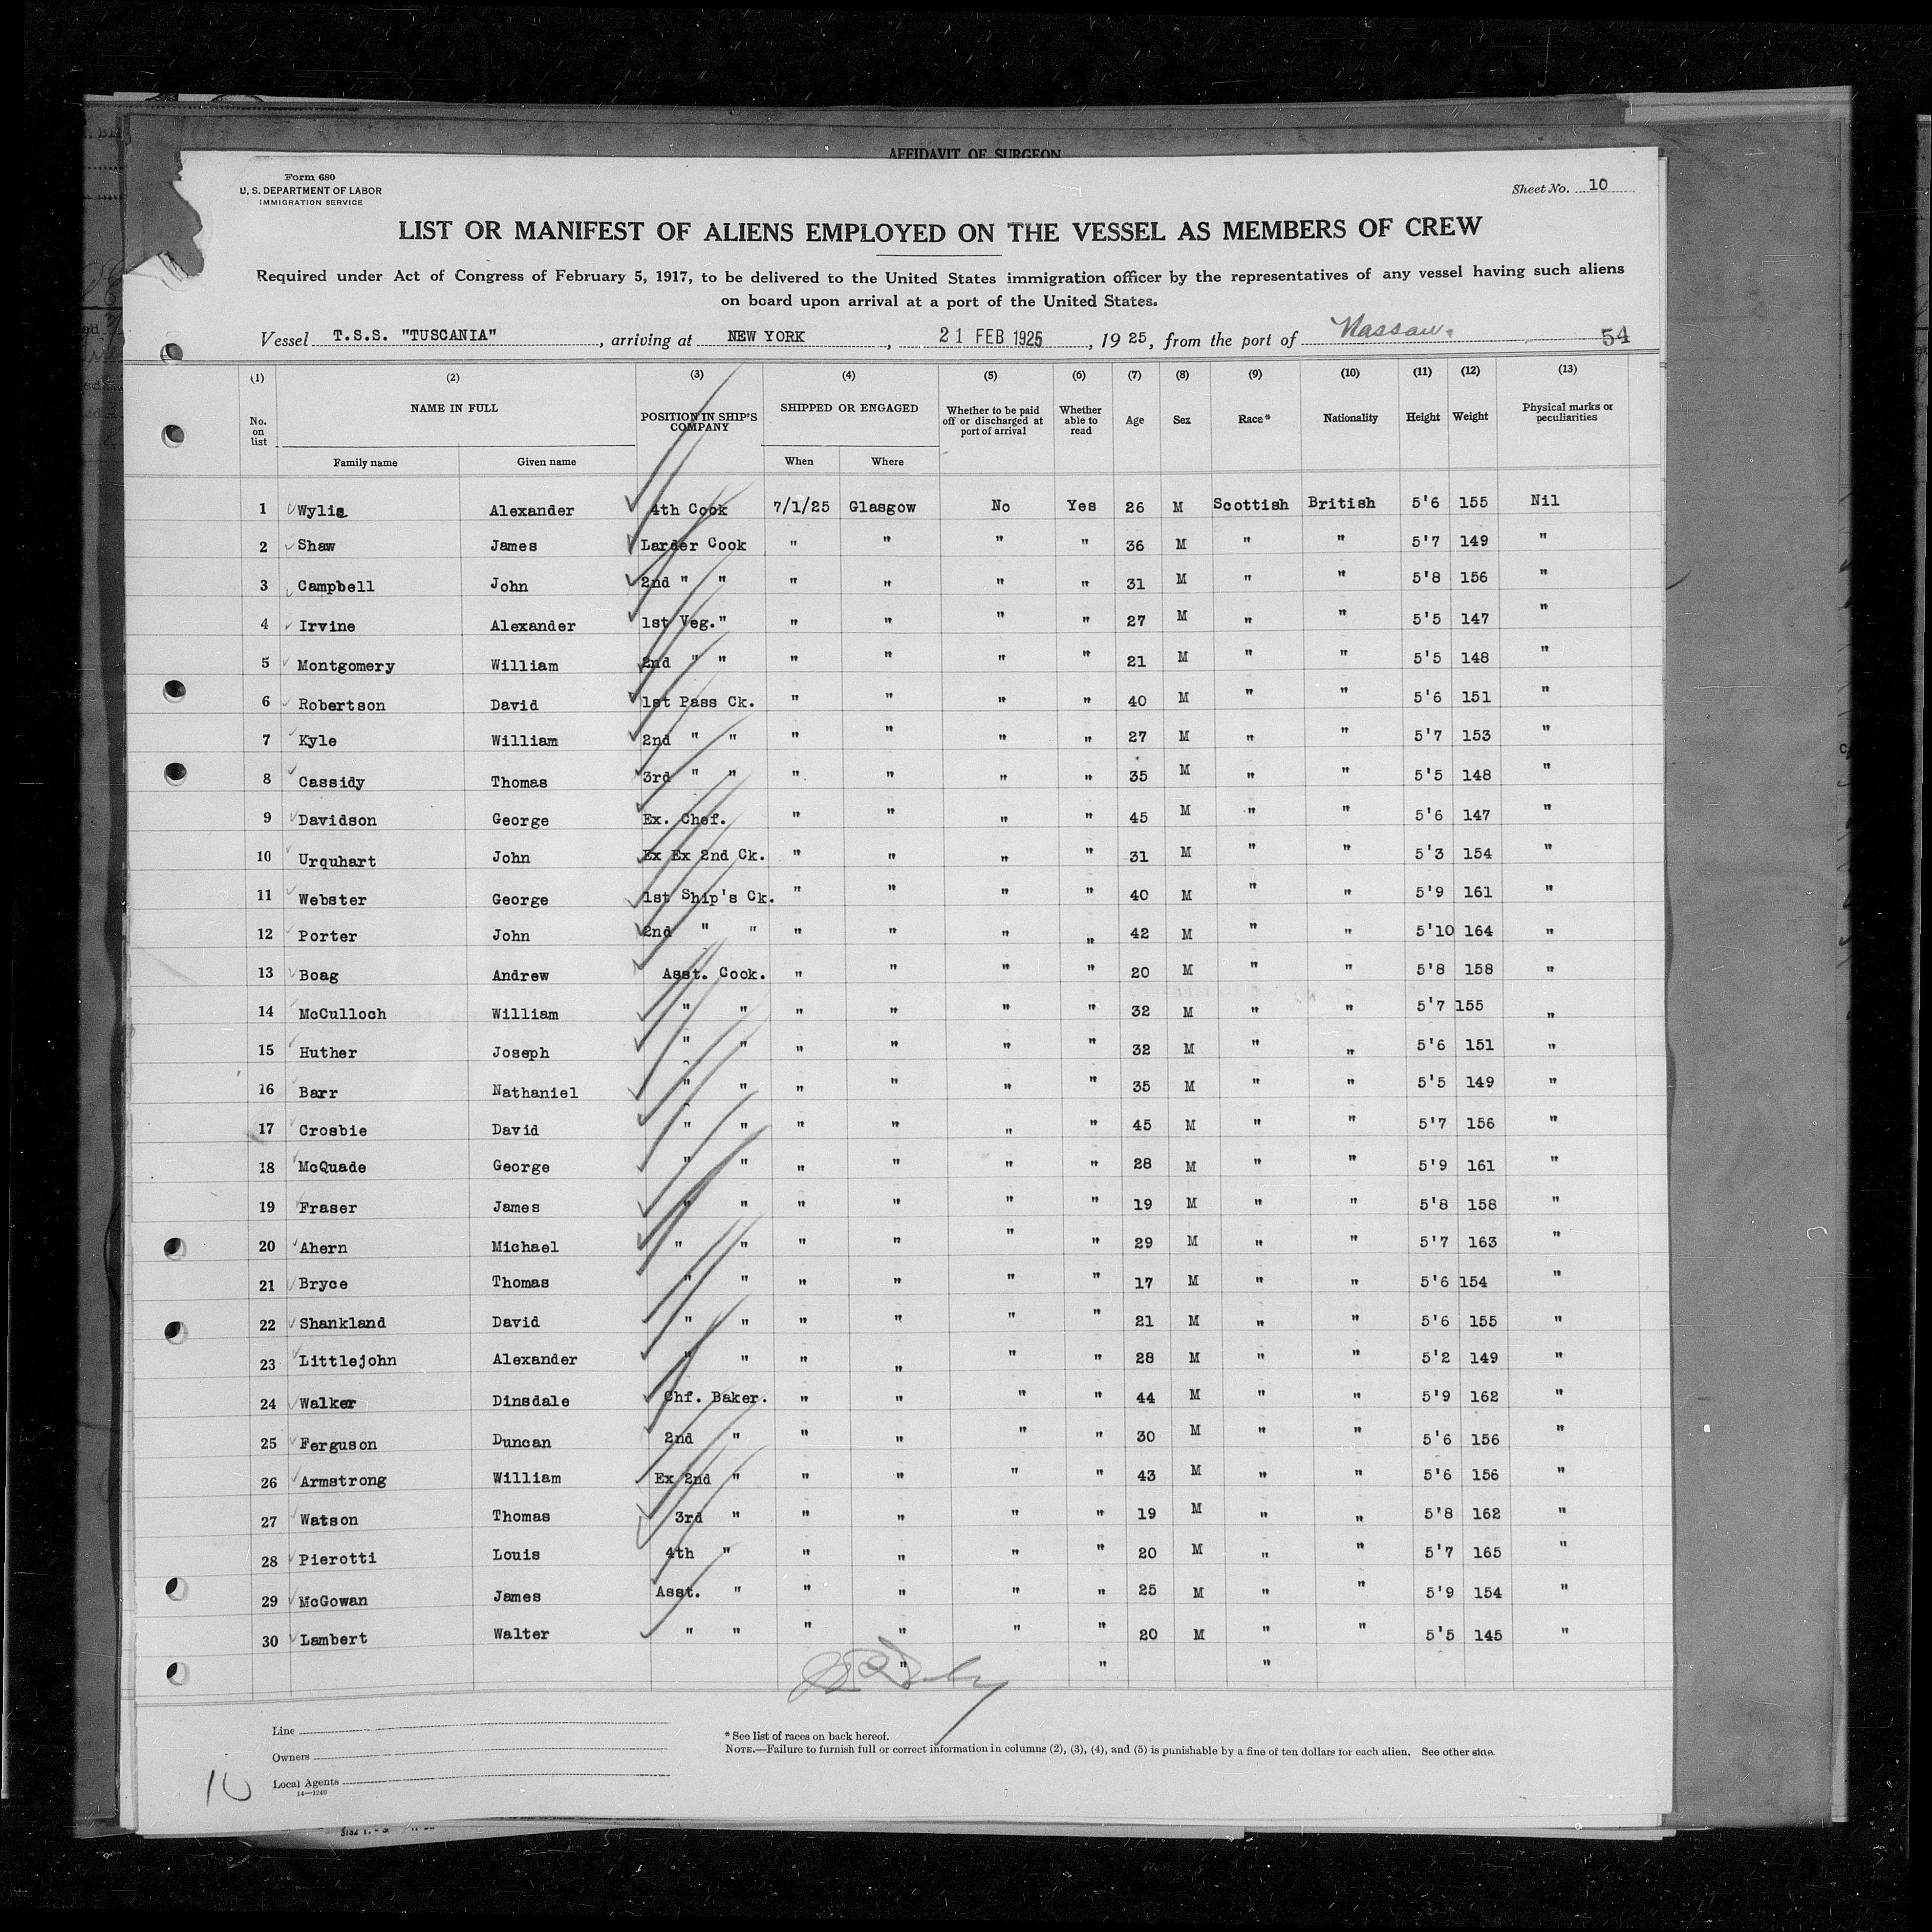 AFFIDAVIT OF SURGEON
Form 680
U. S. DEPARTMENT OF LABOR
IMMIGRATION SERVICE
Sheet No. 10
LIST OR MANIFEST OF ALIENS EMPLOYED ON THE VESSEL AS MEMBERS OF CREW
Required under Act of Congress of February 5, 1917, to be delivered to the United States immigration officer by the representatives of any vessel having such aliens
on board upon arrival at a port of the United States.
Vessel T.S.S. "TUSCANIA", arriving at NEW YORK, 21 FEB 1925, 1925, from the port of Nassau. 54
(1) (2) (3) (4) (5) (6) (7) (8) (9) (10) (11) (12) (13)
No. on list NAME IN FULL POSITION IN SHIP'S COMPANY SHIPPED OR ENGAGED Whether to be paid off or discharged at port of arrival Whether able to read Age Sex Race* Nationality Height Weight Physical marks or peculiarities
Family name Given name When Where
1 Wylie Alexander 4th Cook 7/1/25 Glasgow No Yes 26 M Scottish British 5'6 155 Nil
2 Shaw James Larder Cook " " " " 36 M " " 5'7 149 "
3 Campbell John 2nd " " " " " " 31 M " " 5'8 156 "
4 Irvine Alexander 1st Veg." " " " " 27 M " " 5'5 147 "
5 Montgomery William 2nd " " " " " " 21 M " " 5'5 148 "
6 Robertson David 1st Pass Ck. " " " " 40 M " " 5'6 151 "
7 Kyle William 2nd " " " " " " 27 M " " 5'7 153 "
8 Cassidy Thomas 3rd " " " " " " 35 M " " 5'5 148 "
9 Davidson George Ex. Chef. " " " " 45 M " " 5'6 147 "
10 Urquhart John Ex Ex 2nd Ck. " " " " 31 M " " 5'3 154 "
11 Webster George 1st Ship's Ck. " " " " 40 M " " 5'9 161 "
12 Porter John 2nd " " " " " " 42 M " " 5'10 164 "
13 Boag Andrew Asst. Cook. " " " " 20 M " " 5'8 158 "
14 McCulloch William " " " " " " 32 M " " 5'7 155 "
15 Huther Joseph " " " " " " 32 M " " 5'6 151 "
16 Barr Nathaniel " " " " " " 35 M " " 5'5 149 "
17 Crosbie David " " " " " " 45 M " " 5'7 156 "
18 McQuade George " " " " " " 28 M " " 5'9 161 "
19 Fraser James " " " " " " 19 M " " 5'8 158 "
20 Ahern Michael " " " " " " 29 M " " 5'7 163 "
21 Bryce Thomas " " " " " " 17 M " " 5'6 154 "
22 Shankland David " " " " " " 21 M " " 5'6 155 "
23 Littlejohn Alexander " " " " " " 28 M " " 5'2 149 "
24 Walker Dinsdale Chf. Baker. " " " " 44 M " " 5'9 162 "
25 Ferguson Duncan 2nd " " " " " 30 M " " 5'6 156 "
26 Armstrong William Ex 2nd " " " " " 43 M " " 5'6 156 "
27 Watson Thomas 3rd " " " " " 19 M " " 5'8 162 "
28 Pierotti Louis 4th " " " " " 20 M " " 5'7 165 "
29 McGowan James Asst. " " " " " 25 M " " 5'9 154 "
30 Lambert Walter " " " " " " 20 M " " 5'5 145 "
" " "
Line
Owners
Local Agents
14—1240
* See list of races on back hereof.
NOTE.—Failure to furnish full or correct information in columns (2), (3), (4), and (5) is punishable by a fine of ten dollars for each alien. See other side.
10